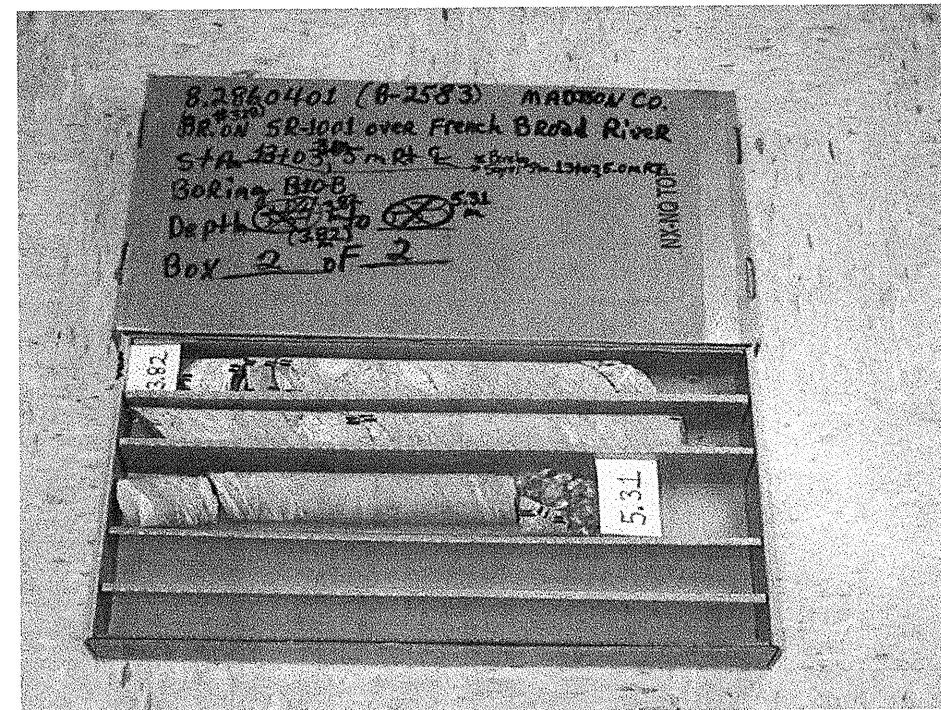 8.2860401 (B-2583) MADISON CO.
BR. ON SR-1001 over French Broad River
Sta 13+03 5 m Rt
Boring B10-B
Depth (3.82) to 5.31 m
Box 2 of 2
NX-NO TOP
3.82
5.31